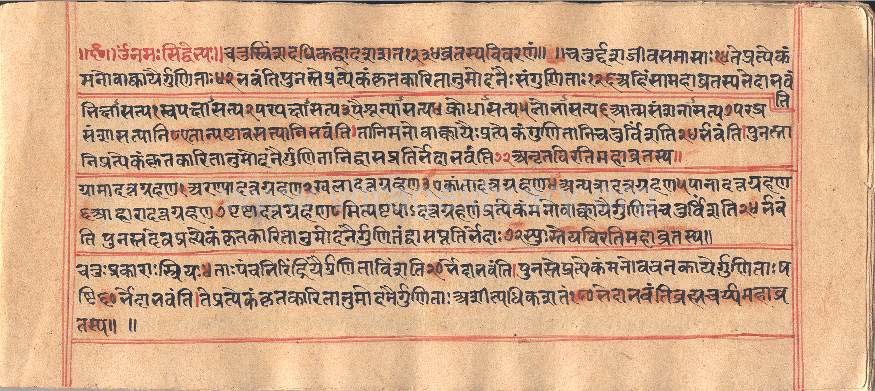 ॥ॐ॥ ॐनमः सिद्धेभ्यः॥ चतुस्त्रिंशदधिकद्वादशशत१२३४व्रतस्यविवरणं॥ ॥ चतुर्द्दशजीवसमासाः१४तेप्रत्येकं
मनोवाक्कायैर्गुणिताः४२भवंतिपुनस्तेप्रत्येकंकृतकारितानुमोदनैःसंगुणिताः१२६अहिंसामहाव्रतस्यभेदाभवं
ति
भीर्तासत्य१स्वपक्षासत्य२परपक्षासत्य३पैशून्यासत्य४क्रोधासत्य५लोभासत्य६आत्मसंशनासत्य७परप्र
संशासत्यानि८एतान्यष्टावसत्यानिभवंति।तानिमनोवाक्कायैःप्रत्येकंगुणितानिचतुर्विंशति२४र्भवंति।पुनस्ता
निप्रत्येकंकृतकारितानुमोदनैर्गुणितानिद्वासप्रतिर्भेदाभवंति७२अनृतविरतिमहाव्रतस्य॥
ग्रामादत्तग्रहण१अरण्यादत्तग्रहण२खलादत्तग्रहण३एकांतादत्तग्रहण४अन्यत्रादत्तग्रहण५
६ ७ ८मित्यष्टधाऽदत्तग्रहणंप्रत्येकंमनोवाक्कायैर्गुणितंचतुर्विंशति२४र्भवं
ति पुनस्तदेवप्रत्येकंकृतकारितानुमोदनैर्गुणितंद्वासप्रतिर्भेदाः७२स्युःस्तेयविरतिमहाव्रतस्य॥
चतुःप्रकाराःस्त्रियः४ताःपंचभिरिंद्रियैर्गुणिताविंशति२०र्भेदाभवंति।पुनस्तेप्रत्येकंमनोवचनकायैर्गुणिताःष
ष्टि६०र्भेदाभवंति।तेप्रत्येकंकृतकारितानुमोदनैर्गुणिताःअशीत्यधिकशतं१८०भेदाभवंतिब्रह्मचर्य्यमहाव्र
तस्य॥ ॥